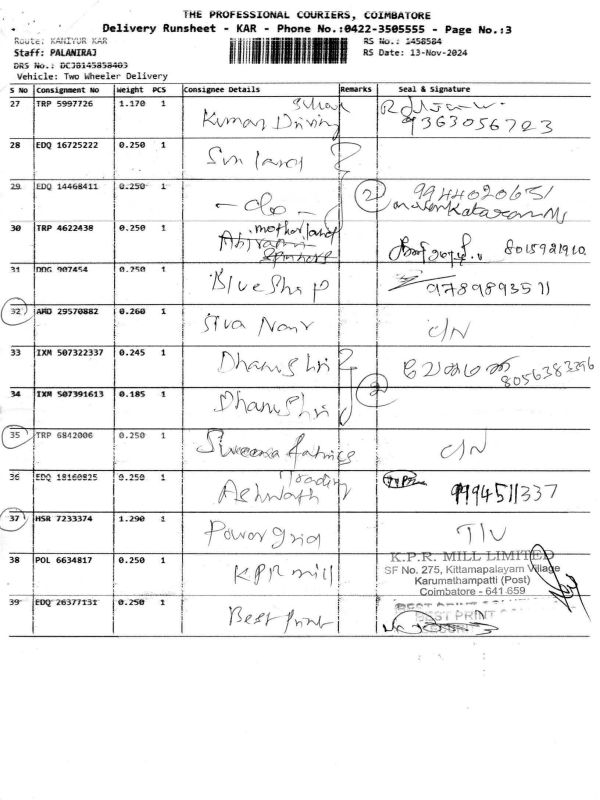 THE PROFESSIONAL COURIERS, COIMBATORE
Delivery Runsheet - KAR - Phone No.:0422-3505555 - Page No.:3
Route: KANIYUR KAR RS No.: 1458584
Staff: PALANIRAJ RS Date: 13-Nov-2024
DRS No.: DCJB145858403
Vehicle: Two Wheeler Delivery
S No Consignment No Weight PCS Consignee Details Remarks Seal & Signature
27 TRP 5997726 1.170 1 Kumar Driving 9363056723
28 EDQ 16725222 0.250 1 Sun land
29 EDQ 14468411 0.250 1 - do - 2 9944020651
30 TRP 4622438 0.250 1 motherland 8015921910
31 DDG 907454 0.250 1 Blue Shap 9789893511
32 AMD 29570882 0.260 1 Siva Nair C/N
33 IXM 507322337 0.245 1 Dhanushri 8056383396
34 IXM 507391613 0.185 1 Dhanushri 2
35 TRP 6842006 0.250 1 C/N
36 EDQ 18160825 0.250 1 Ashwath Trading 9994511337
37 HSR 7233374 1.290 1 Power grid
38 POL 6634817 0.250 1 KPR mill K.P.R. MILL LIMITED
SF No. 275, Kittamapalayam Village
Karumathampatti (Post)
Coimbatore - 641 659
39 EDQ 26377131 0.250 1 Best print BEST PRINT